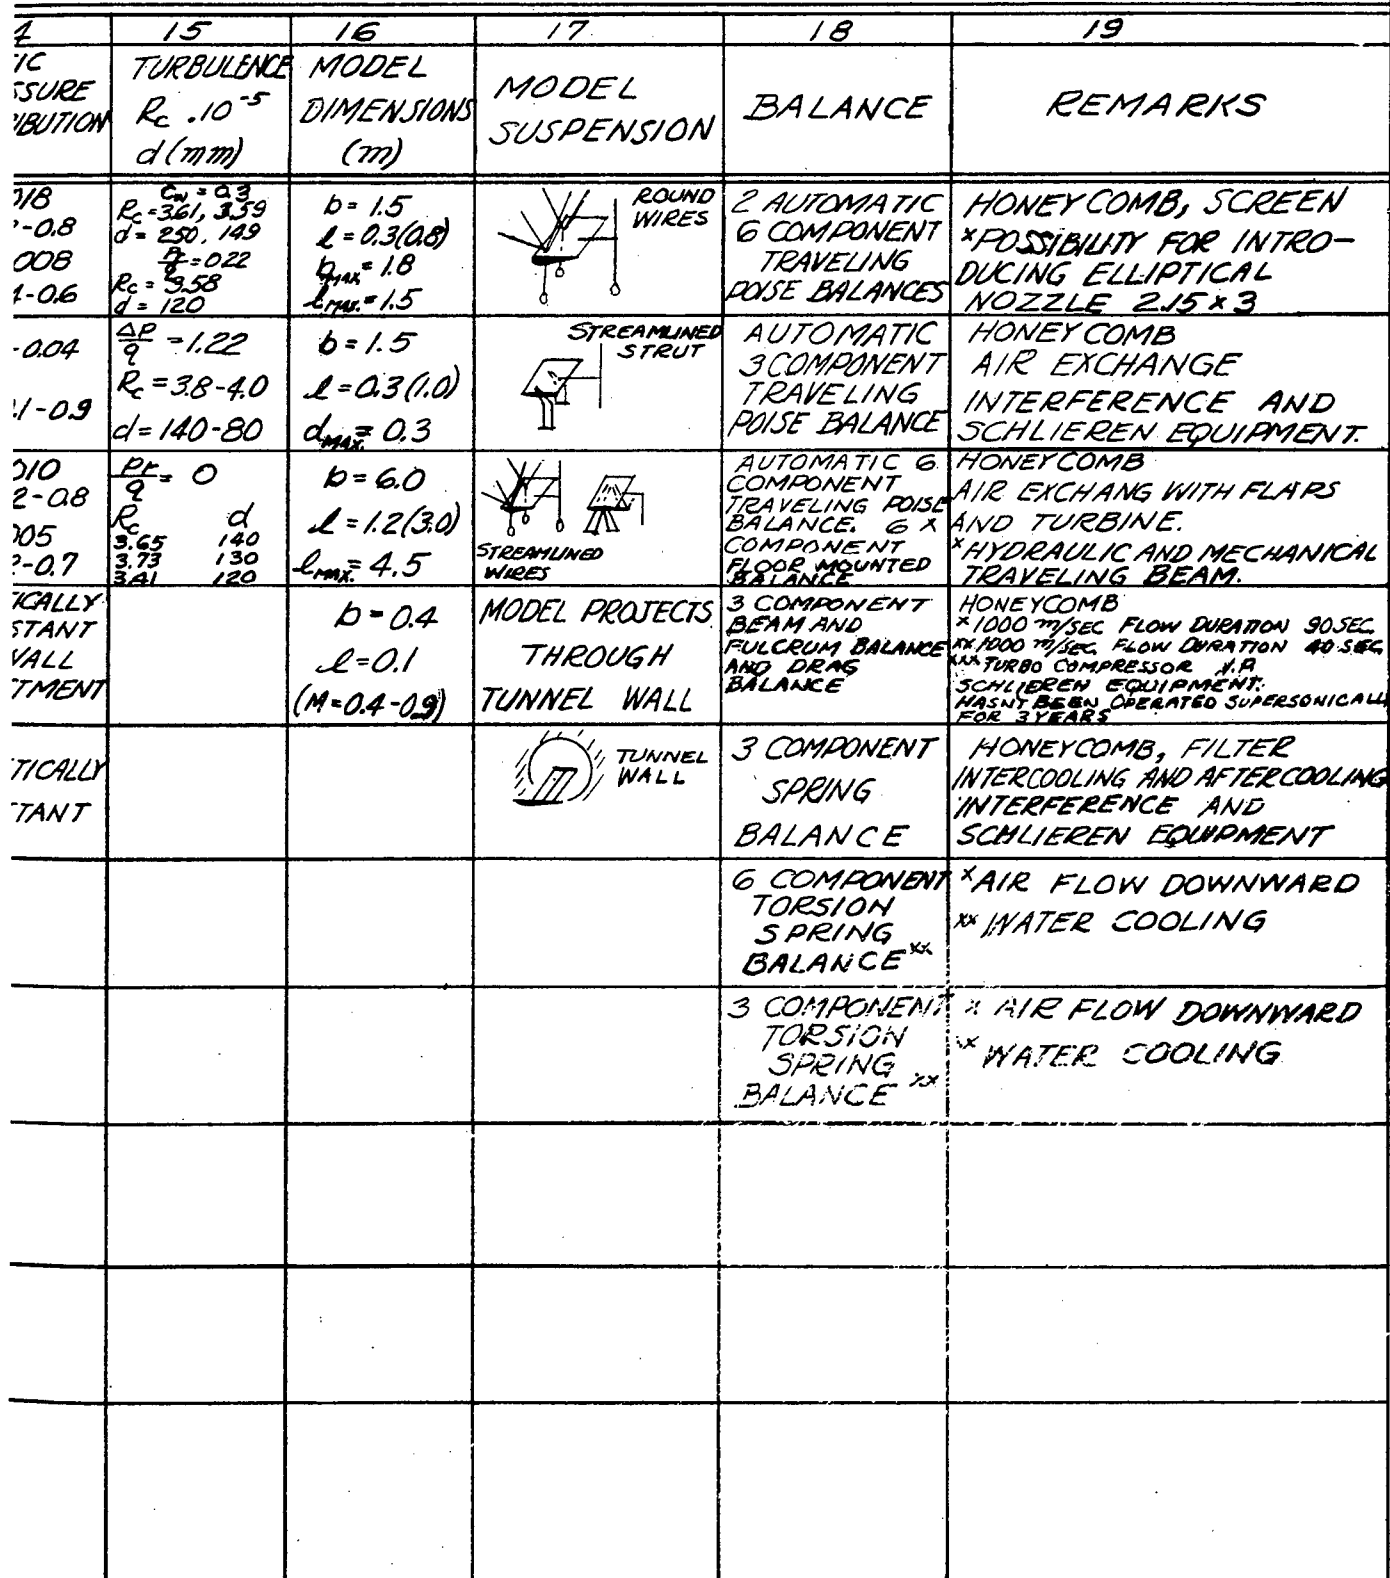 4 15 16 17 18 19
IC
SSURE
IBUTION
TURBULENCE
Rc . 10⁻⁵
d (mm)
MODEL
DIMENSIONS
(m)
MODEL
SUSPENSION
BALANCE
REMARKS
018
-0.8
008
1-0.6
Cw = 0.3
Rc = 3.61, 3.59
d = 250, 149
= 022
Rc = 3.58
d = 120
b = 1.5
l = 0.3(0.8)
bMAX. = 1.8
lMAX. = 1.5
ROUND
WIRES
2 AUTOMATIC
6 COMPONENT
TRAVELING
POISE BALANCES
HONEYCOMB, SCREEN
x POSSIBILITY FOR INTRO-
DUCING ELLIPTICAL
NOZZLE 2.15 x 3
-0.04
.1-0.9
ΔP/q = 1.22
Rc = 3.8-4.0
d = 140-80
b = 1.5
l = 0.3 (1.0)
dMAX. = 0.3
STREAMLINED
STRUT
AUTOMATIC
3 COMPONENT
TRAVELING
POISE BALANCE
HONEYCOMB
AIR EXCHANGE
INTERFERENCE AND
SCHLIEREN EQUIPMENT.
010
2-0.8
005
?-0.7
Pr/q = 0
Rc d
3.65 140
3.73 130
3.41 120
b = 6.0
l = 1.2(3.0)
lMAX. = 4.5
STREAMLINED
WIRES
AUTOMATIC 6
COMPONENT
TRAVELING POISE
BALANCE. 6 x
COMPONENT
FLOOR MOUNTED
BALANCE
HONEYCOMB
AIR EXCHANG WITH FLAPS
AND TURBINE.
x HYDRAULIC AND MECHANICAL
TRAVELING BEAM.
ICALLY
STANT
WALL
TMENT
b = 0.4
l = 0.1
(M = 0.4-0.9)
MODEL PROJECTS
THROUGH
TUNNEL WALL
3 COMPONENT
BEAM AND
FULCRUM BALANCE
AND DRAG
BALANCE
HONEYCOMB
x 1000 m/SEC FLOW DURATION 90 SEC
xx 1000 m/SEC FLOW DURATION 40 SEC
xxx TURBO COMPRESSOR
SCHLIEREN EQUIPMENT.
HASNT BEEN OPERATED SUPERSONICALLY
FOR 3 YEARS
TICALLY
TANT
TUNNEL
WALL
3 COMPONENT
SPRING
BALANCE
HONEYCOMB, FILTER
INTERCOOLING AND AFTERCOOLING
INTERFERENCE AND
SCHLIEREN EQUIPMENT
6 COMPONENT
TORSION
SPRING
BALANCE xx
x AIR FLOW DOWNWARD
xx WATER COOLING
3 COMPONENT
TORSION
SPRING
BALANCE xx
x AIR FLOW DOWNWARD
xx WATER COOLING